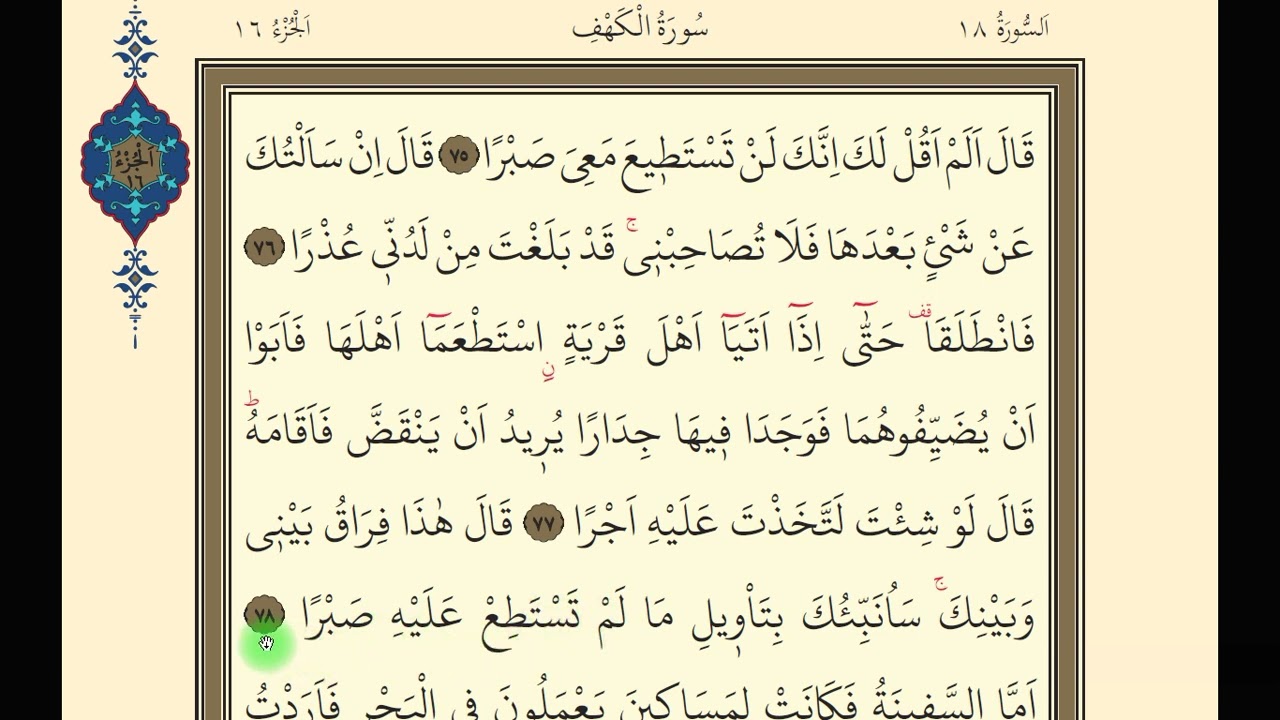 اَلسُّورَةُ ١٨
سُورَةُ الْكَهْفِ
اَلْجُزْءُ ١٦
اَلْجُزْءُ
١٦
قَالَ اَلَمْ اَقُلْ لَكَ اِنَّكَ لَنْ تَسْتَطٖيعَ مَعِىَ صَبْرًا ٧٥ قَالَ اِنْ سَاَلْتُكَ
عَنْ شَىْءٍ بَعْدَهَا فَلَا تُصَاحِبْنٖى ۚ قَدْ بَلَغْتَ مِنْ لَدُنّٖى عُذْرًا ٧٦
فَانْطَلَقَا قف حَتّٰٓى اِذَٓا اَتَيَٓا اَهْلَ قَرْيَةٍ نِ اسْتَطْعَمَٓا اَهْلَهَا فَاَبَوْا
اَنْ يُضَيِّفُوهُمَا فَوَجَدَا فٖيهَا جِدَارًا يُرٖيدُ اَنْ يَنْقَضَّ فَاَقَامَهُ ؕ
قَالَ لَوْ شِئْتَ لَتَّخَذْتَ عَلَيْهِ اَجْرًا ٧٧ قَالَ هٰذَا فِرَاقُ بَيْنٖى
وَبَيْنِكَ ۚ سَاُنَبِّئُكَ بِتَاْوٖيلِ مَا لَمْ تَسْتَطِعْ عَلَيْهِ صَبْرًا ٧٨
اَمَّا السَّفٖينَةُ فَكَانَتْ لِمَسَاكٖينَ يَعْمَلُونَ فِى الْبَحْرِ فَاَرَدْتُ